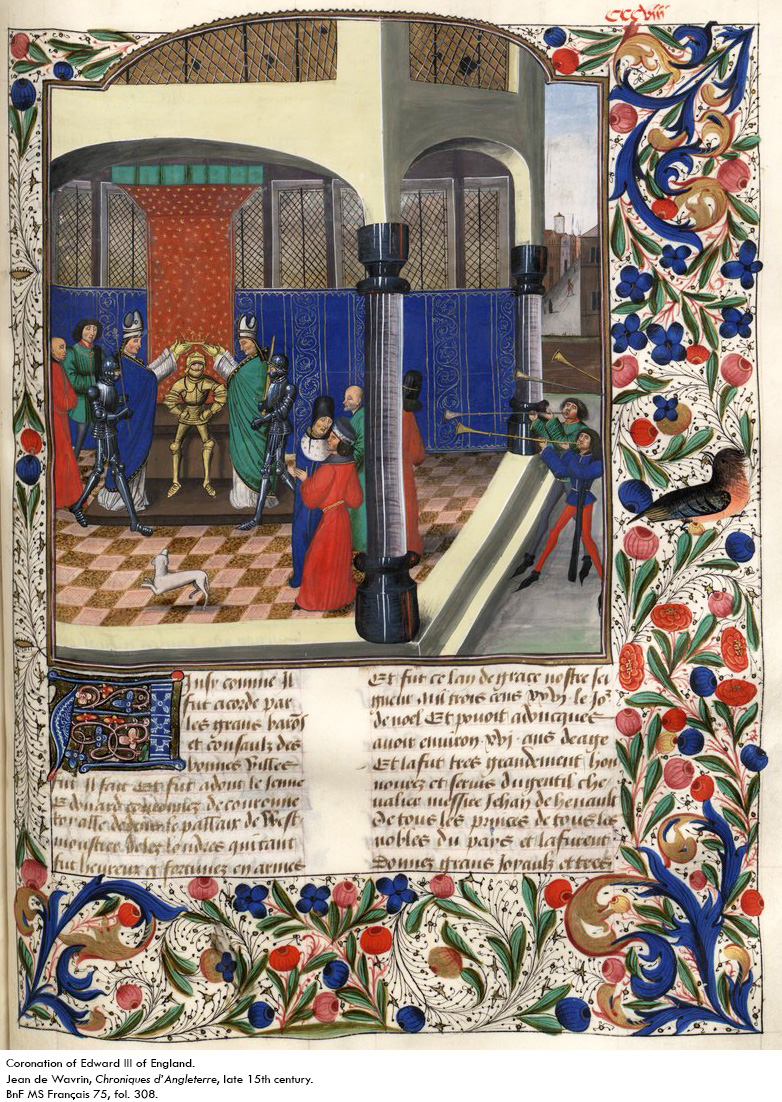 CCCviii
Ainsy comme Il
fut acorde par
les grans barõs
et consaulx des
bonnes villes
fut Il fait Et fut adont le Jenne
Edouard couronnez de couronne
royalle dedens le pallaix de West
monstier delez londres qui tant
fut heureux et fortunez en armes
Et fut ce lan de grace nostre sei
gneur mil trois cens xxvj le Jo͛
de noel Et pouoit adoncques
auoir enuiron xvj ans deage
Et la fut tres grandement hon
nourez et seruis du gentil che
ualier messire Jehan de henault
de tous les princes de tous les
nobles du pays et la furent
Donnez grans Joyaulx et tres
Coronation of Edward III of England.
Jean de Wavrin, Chroniques d’Angleterre, late 15th century.
BnF MS Français 75, fol. 308.